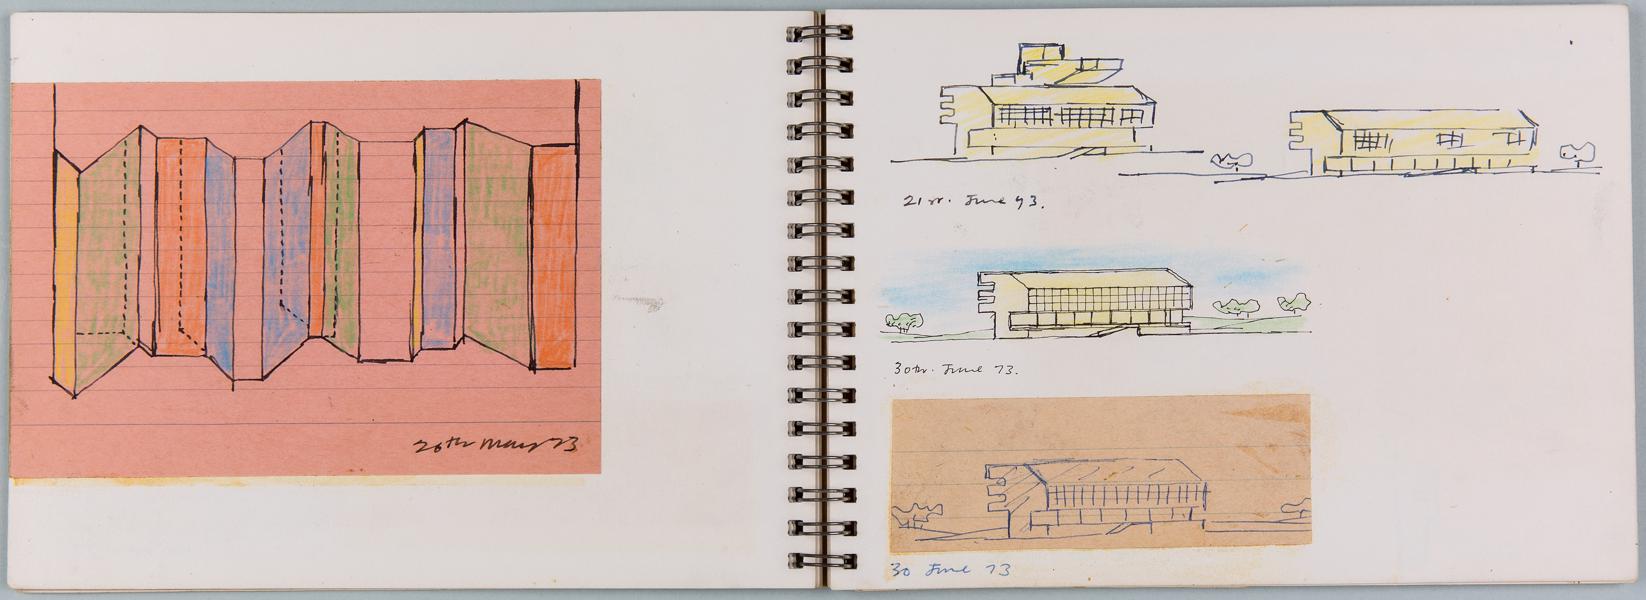 20th May 73
21st. June 73.
30th. June 73.
30 June 73